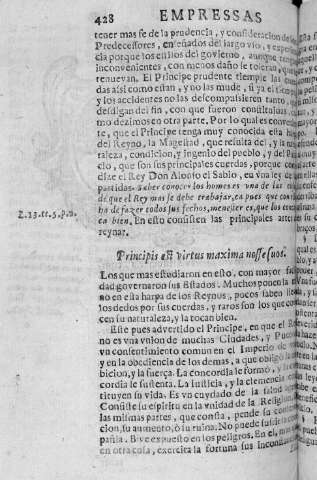 428 EMPRESSAS
tener mas fe de la prudencia, y consideracion de los
Predecessores, enseñados del largo vso, y experien
cia porque los estilos del govierno, aunque tengan
inconvenientes, con menos daño se toleran, que se
renuevan. El Principe prudente tiemple las
das assi como estan, y no las mude, si ya el tiem
y los accidentes no las descompusieren tanto, que
desdigan del fin, con que fueron constituidas
mo dezimos en otra parte. Por lo qual es convenien
te, que el Principe tenga muy conocida esta
del Reyno, la Magestad, que resulta del, y la natu
raleza, condicion, y ingenio del pueblo, y del
cio, que son sus principales cuerdas, porque
dize el Rey Don Alonso el Sabio, en vna ley de
partidas. Saber conocer los homes es vna de las
de que el Rey mas se debe trabajar, ca pues que con
ha de fazer todos sus fechos, menester es, que los conoz
ca bien. En esto consisten las principales artes de
reynar.
Principis est virtus maxima nosse suos.
Los que mas estudiaron en esto, con mayor facili
dad governaron sus Estados. Muchos ponen la ma
no en esta harpa de los Reynos, pocos saben llevar
los dedos por sus cuerdas, y raros son los que cono
cen su naturaleza, y la tocan bien.
Este pues advertido el Principe, en que el Rey
no es vna vnion de muchas Ciudades, y Pueblos
vn consentimiento comun en el Imperio de vno
y en la obediencia de los demas, a que obligò la am
bicion, y la fuerça. La concordia le formò, y la con
cordia le sustenta. La justicia, y la clemencia cons
tituyen su vida. Es vn cuydado de la salud
Consiste su espiritu en la vnidad de la Religion. De
las mismas partes, que consta, pende su conser
su aumento, ò su ruina. No puede sufrir com
pañia. Bive expuesto en los peligros. En el, mas que
en otra cosa, exercita la fortuna sus inconstan